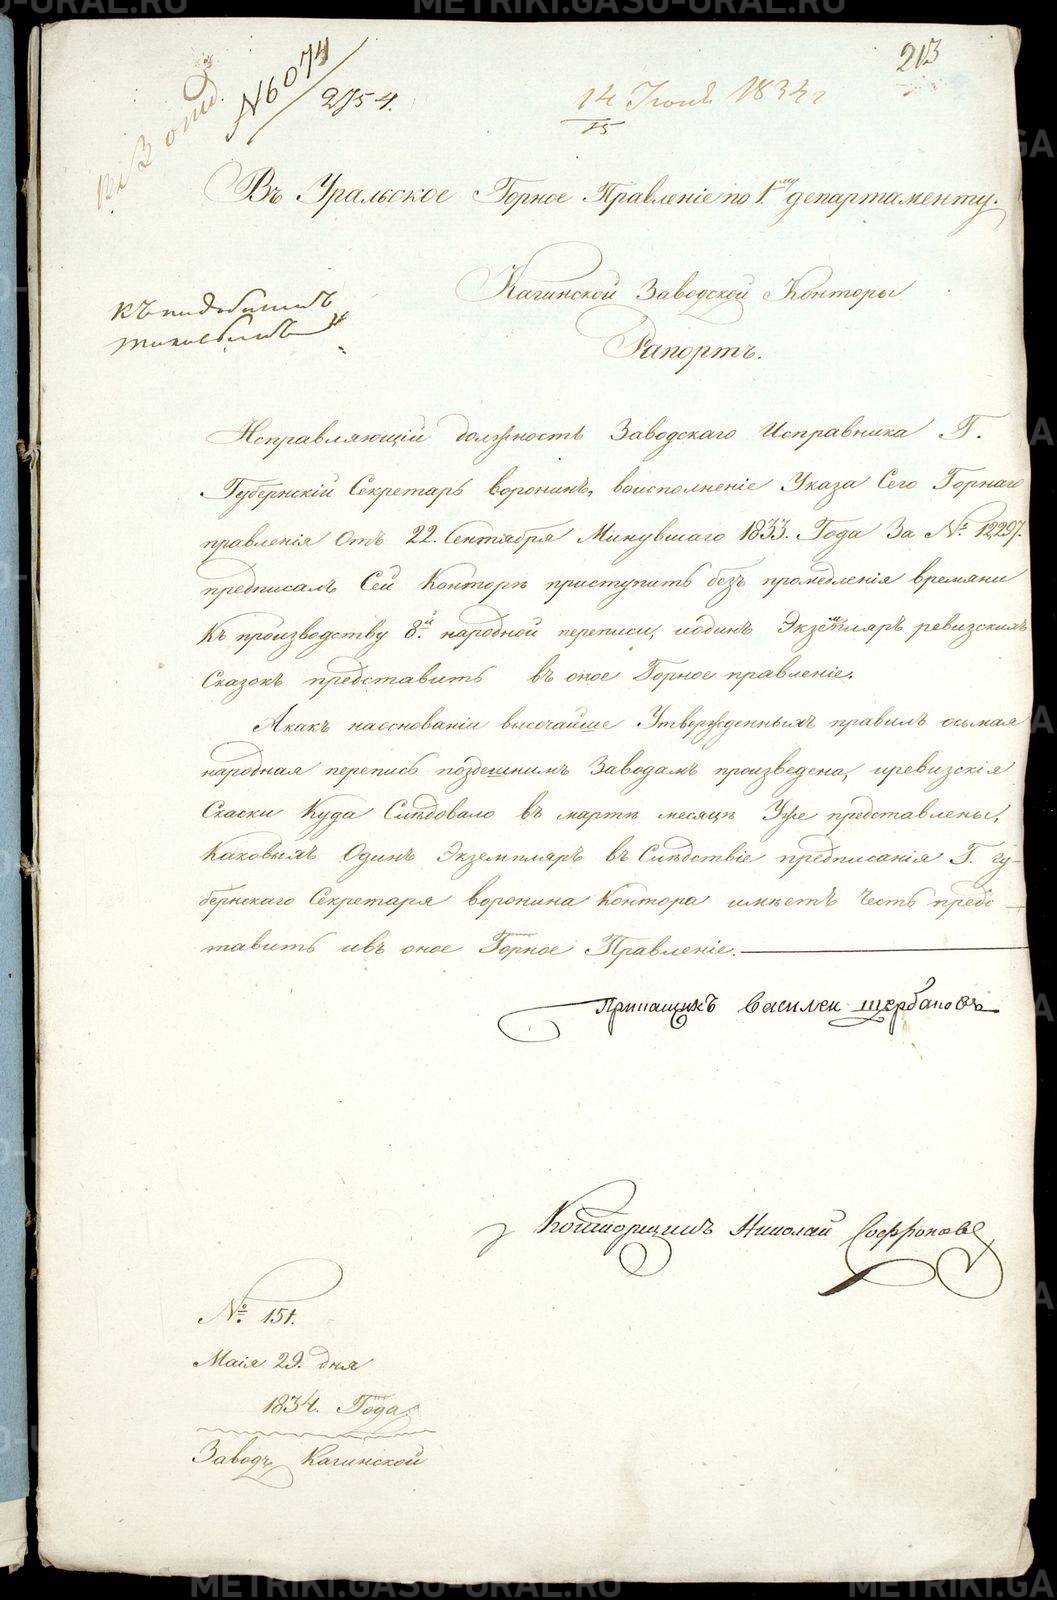 213
№ 6074
2754.
14 Июня 1834 г
15
Въ 3 отд.
Въ Уральское Горное Правленіе по 1му департаменту.
Кагинской Заводской Конторы
Рапортъ.
къ подобнымъ
Исправляющій должность Заводскаго Исправника Г.
Губернскій Секретарь воронинъ, воисполненіе Указа Сего Горнаго
правленія Отъ 22. Сентября Минувшаго 1833. Года За № 12,297.
предписалъ Сей Конторѣ приступить безъ промедленія времяни
Къ производству 8й народной переписи, иодинъ Экземпляръ ревизскихъ
Сказокъ представить въ оное Горное правленіе.
Акакъ наоснованіи высочайше Утвержденныхъ правилъ осьмая
народная перепись поздешнимъ Заводамъ произведена, иревизскія
Скаски Куда Слѣдовало въ мартѣ месяцѣ Уже представлены,
Каковыхъ Одинъ Экземпляръ въ Слѣдствіе предписанія Г. гу-
бернскаго Секретаря воронина Контора имѣетъ Честь предс-
тавить ивъ оное Горное Правленіе.
Прикащикъ Василеи щербаковъ
Конторщикъ Николай Софроновъ
№ 151.
Маія 29. дня
1834. Года.
Заводъ Кагинской
METRIKI.GASU-URAL.RU
METRIKI.GASU-URAL.RU